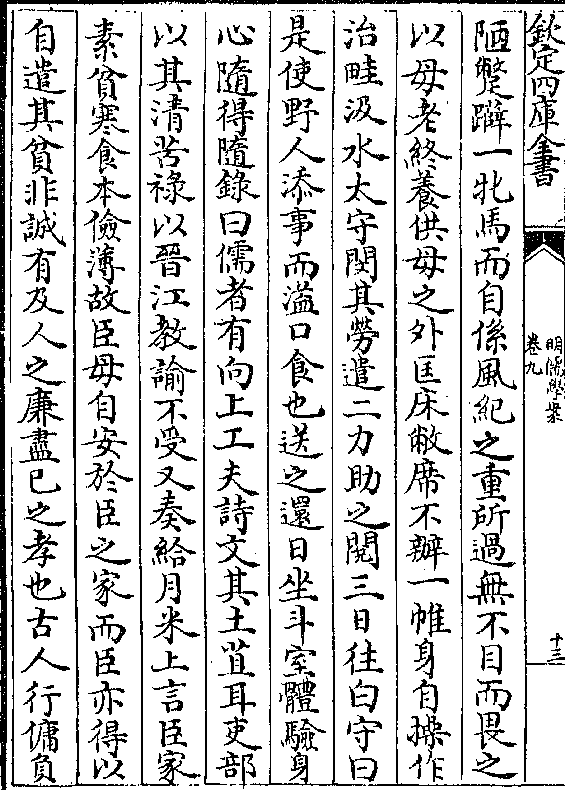 欽定四庫全書
明儒學案
卷九
十三
陋蹩躃一牝馬而自係風紀之重所過無不目而畏之
以母老終養供母之外匡床敝席不辦一帷身自操作
治畦汲水太守閔其勞遣二力助之閱三日往白守曰
是使野人添事而溢口食也送之還日坐斗室體驗身
心隨得隨錄曰儒者有向上工夫詩文其土苴耳吏部
以其清苦祿以晉江教諭不受又奏給月米上言臣家
素貧寒食本儉薄故臣母自安於臣之家而臣亦得以
自遣其貧非誠有及人之廉盡已之孝也古人行傭負